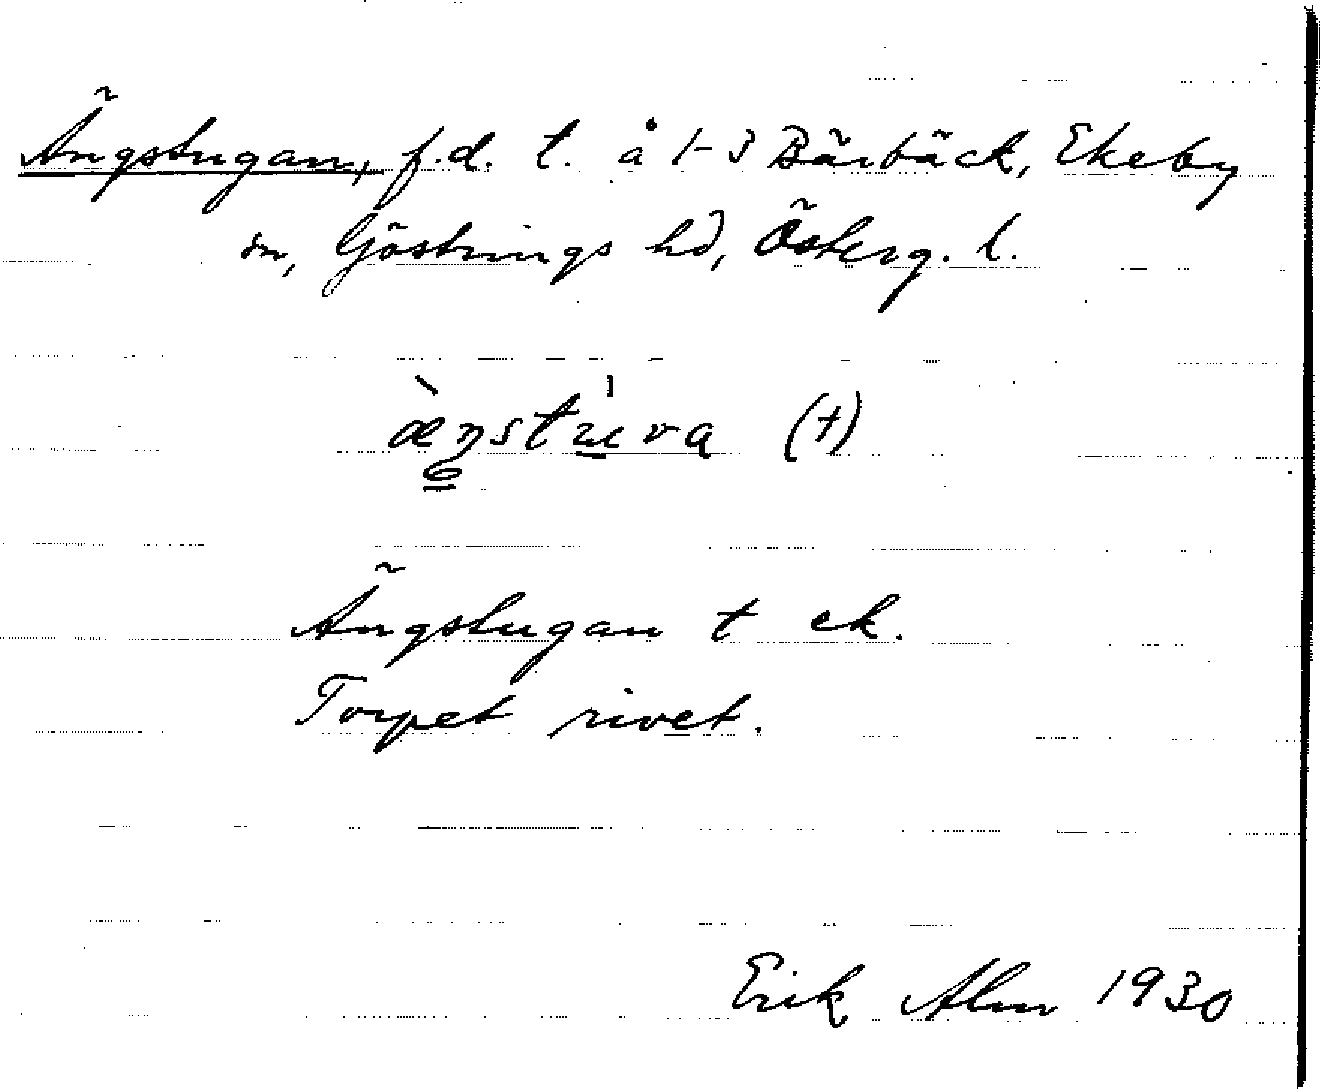 Ängstugan, f.d. t. å 1-3 Bärbäck, Ekeby
sn, Göstrings hd, Österg. l.
æ̀ŋstu̇va (†)
Ängstugan t ek.
Torpet rivet.
Erik Alm 1930